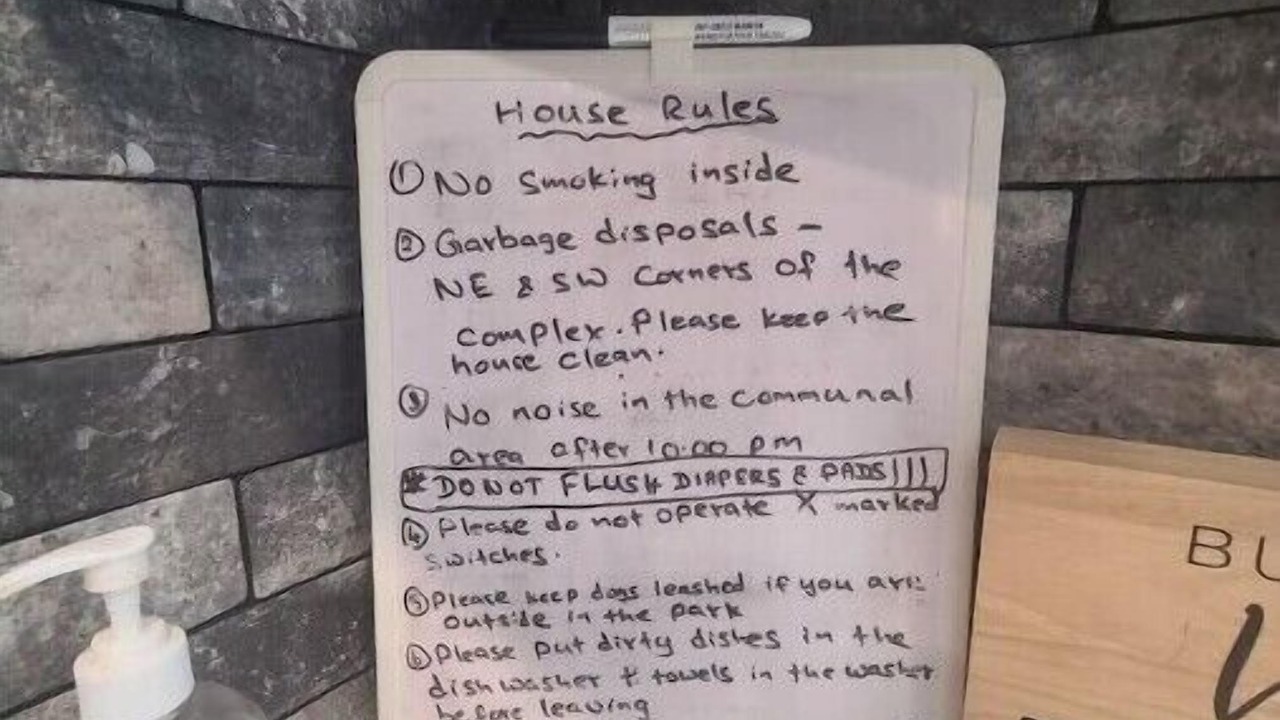 House Rules
① No smoking inside
② Garbage disposals –
NE & SW Corners of the
complex. Please keep the
house clean.
③ No noise in the communal
area after 10.00 pm
* DO NOT FLUSH DIAPERS & PADS!!!
④ Please do not operate X marked
switches.
⑤ Please keep dogs leashed if you are
outside in the park
⑥ Please put dirty dishes in the
dishwasher + towels in the washer
before leaving
BU